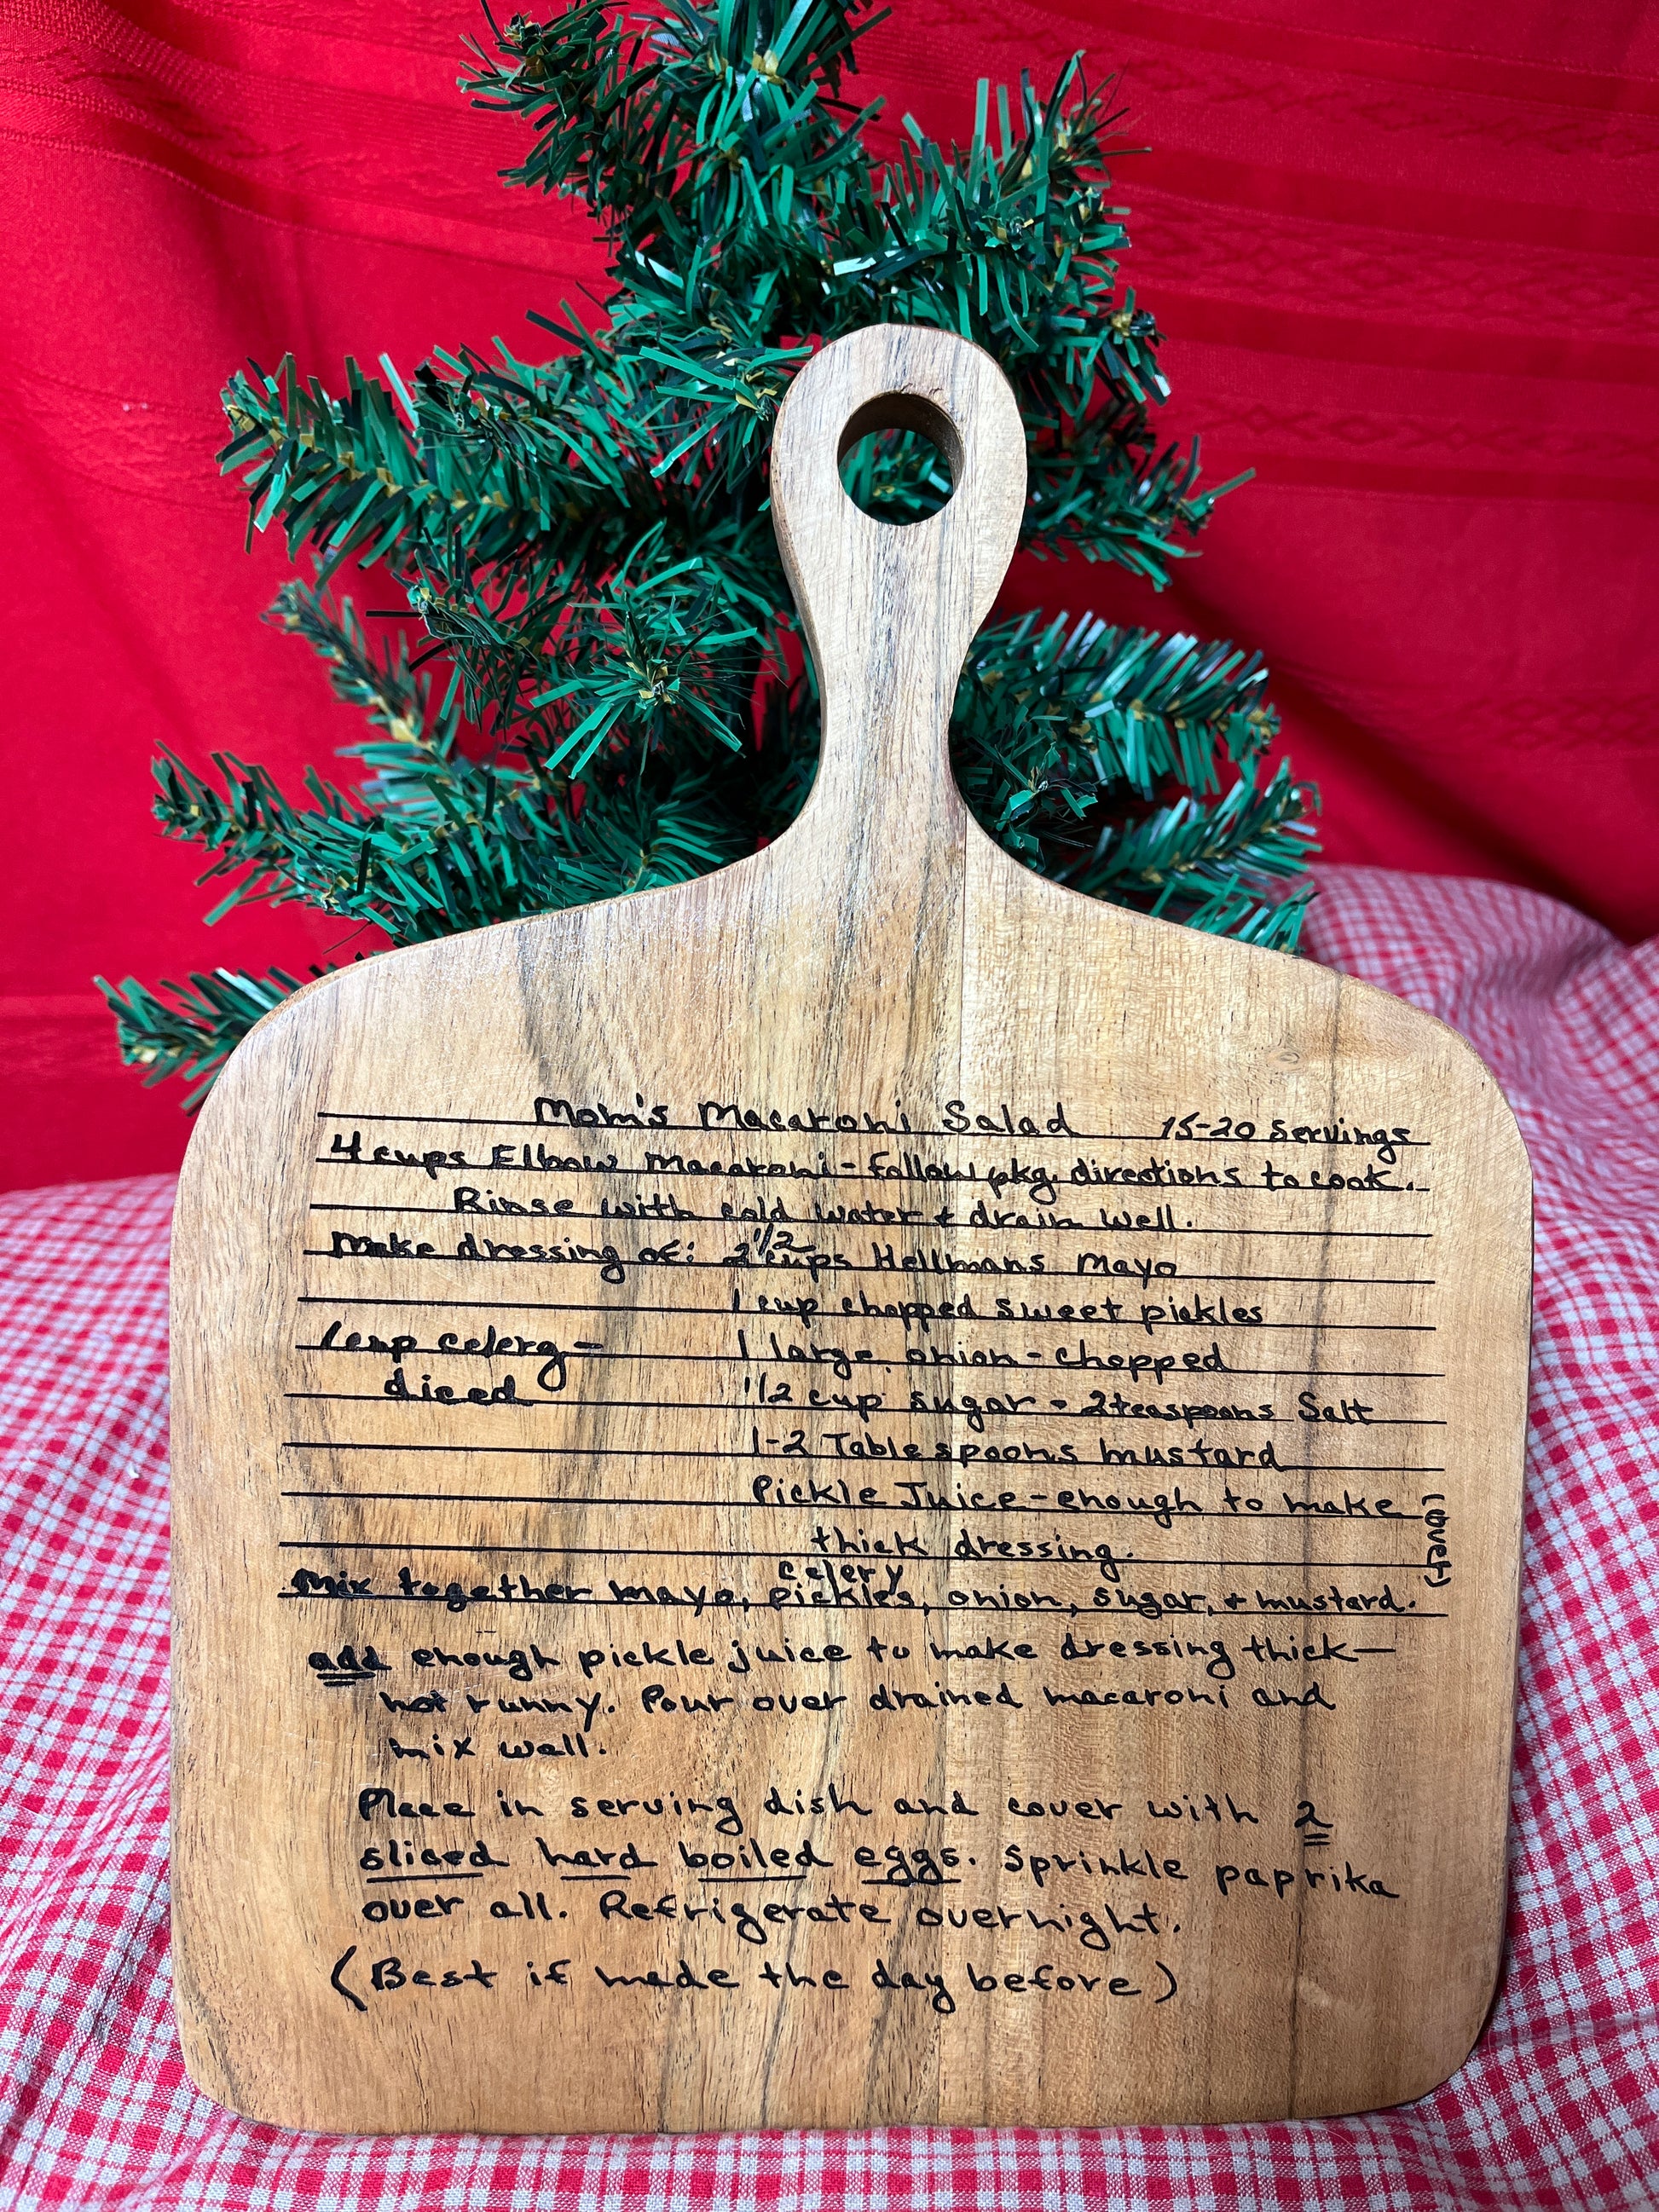 Mom's Macaroni Salad 15-20 Servings
4 cups Elbow Macaroni - follow pkg. directions to cook.
Rinse with cold water & drain well.
Make dressing of: 2 1/2 cups Hellmans Mayo
1 cup chopped sweet pickles
1 cup celery - 1 large onion - chopped
diced 1/2 cup sugar - 2 teaspoons Salt
1-2 Tablespoons mustard
Pickle Juice - enough to make
thick dressing.
celery
Mix together mayo, pickles, onion, sugar, & mustard.
add enough pickle juice to make dressing thick—
not runny. Pour over drained macaroni and
mix well.
Place in serving dish and cover with 2
sliced hard boiled eggs. Sprinkle paprika
over all. Refrigerate overnight.
(Best if made the day before)